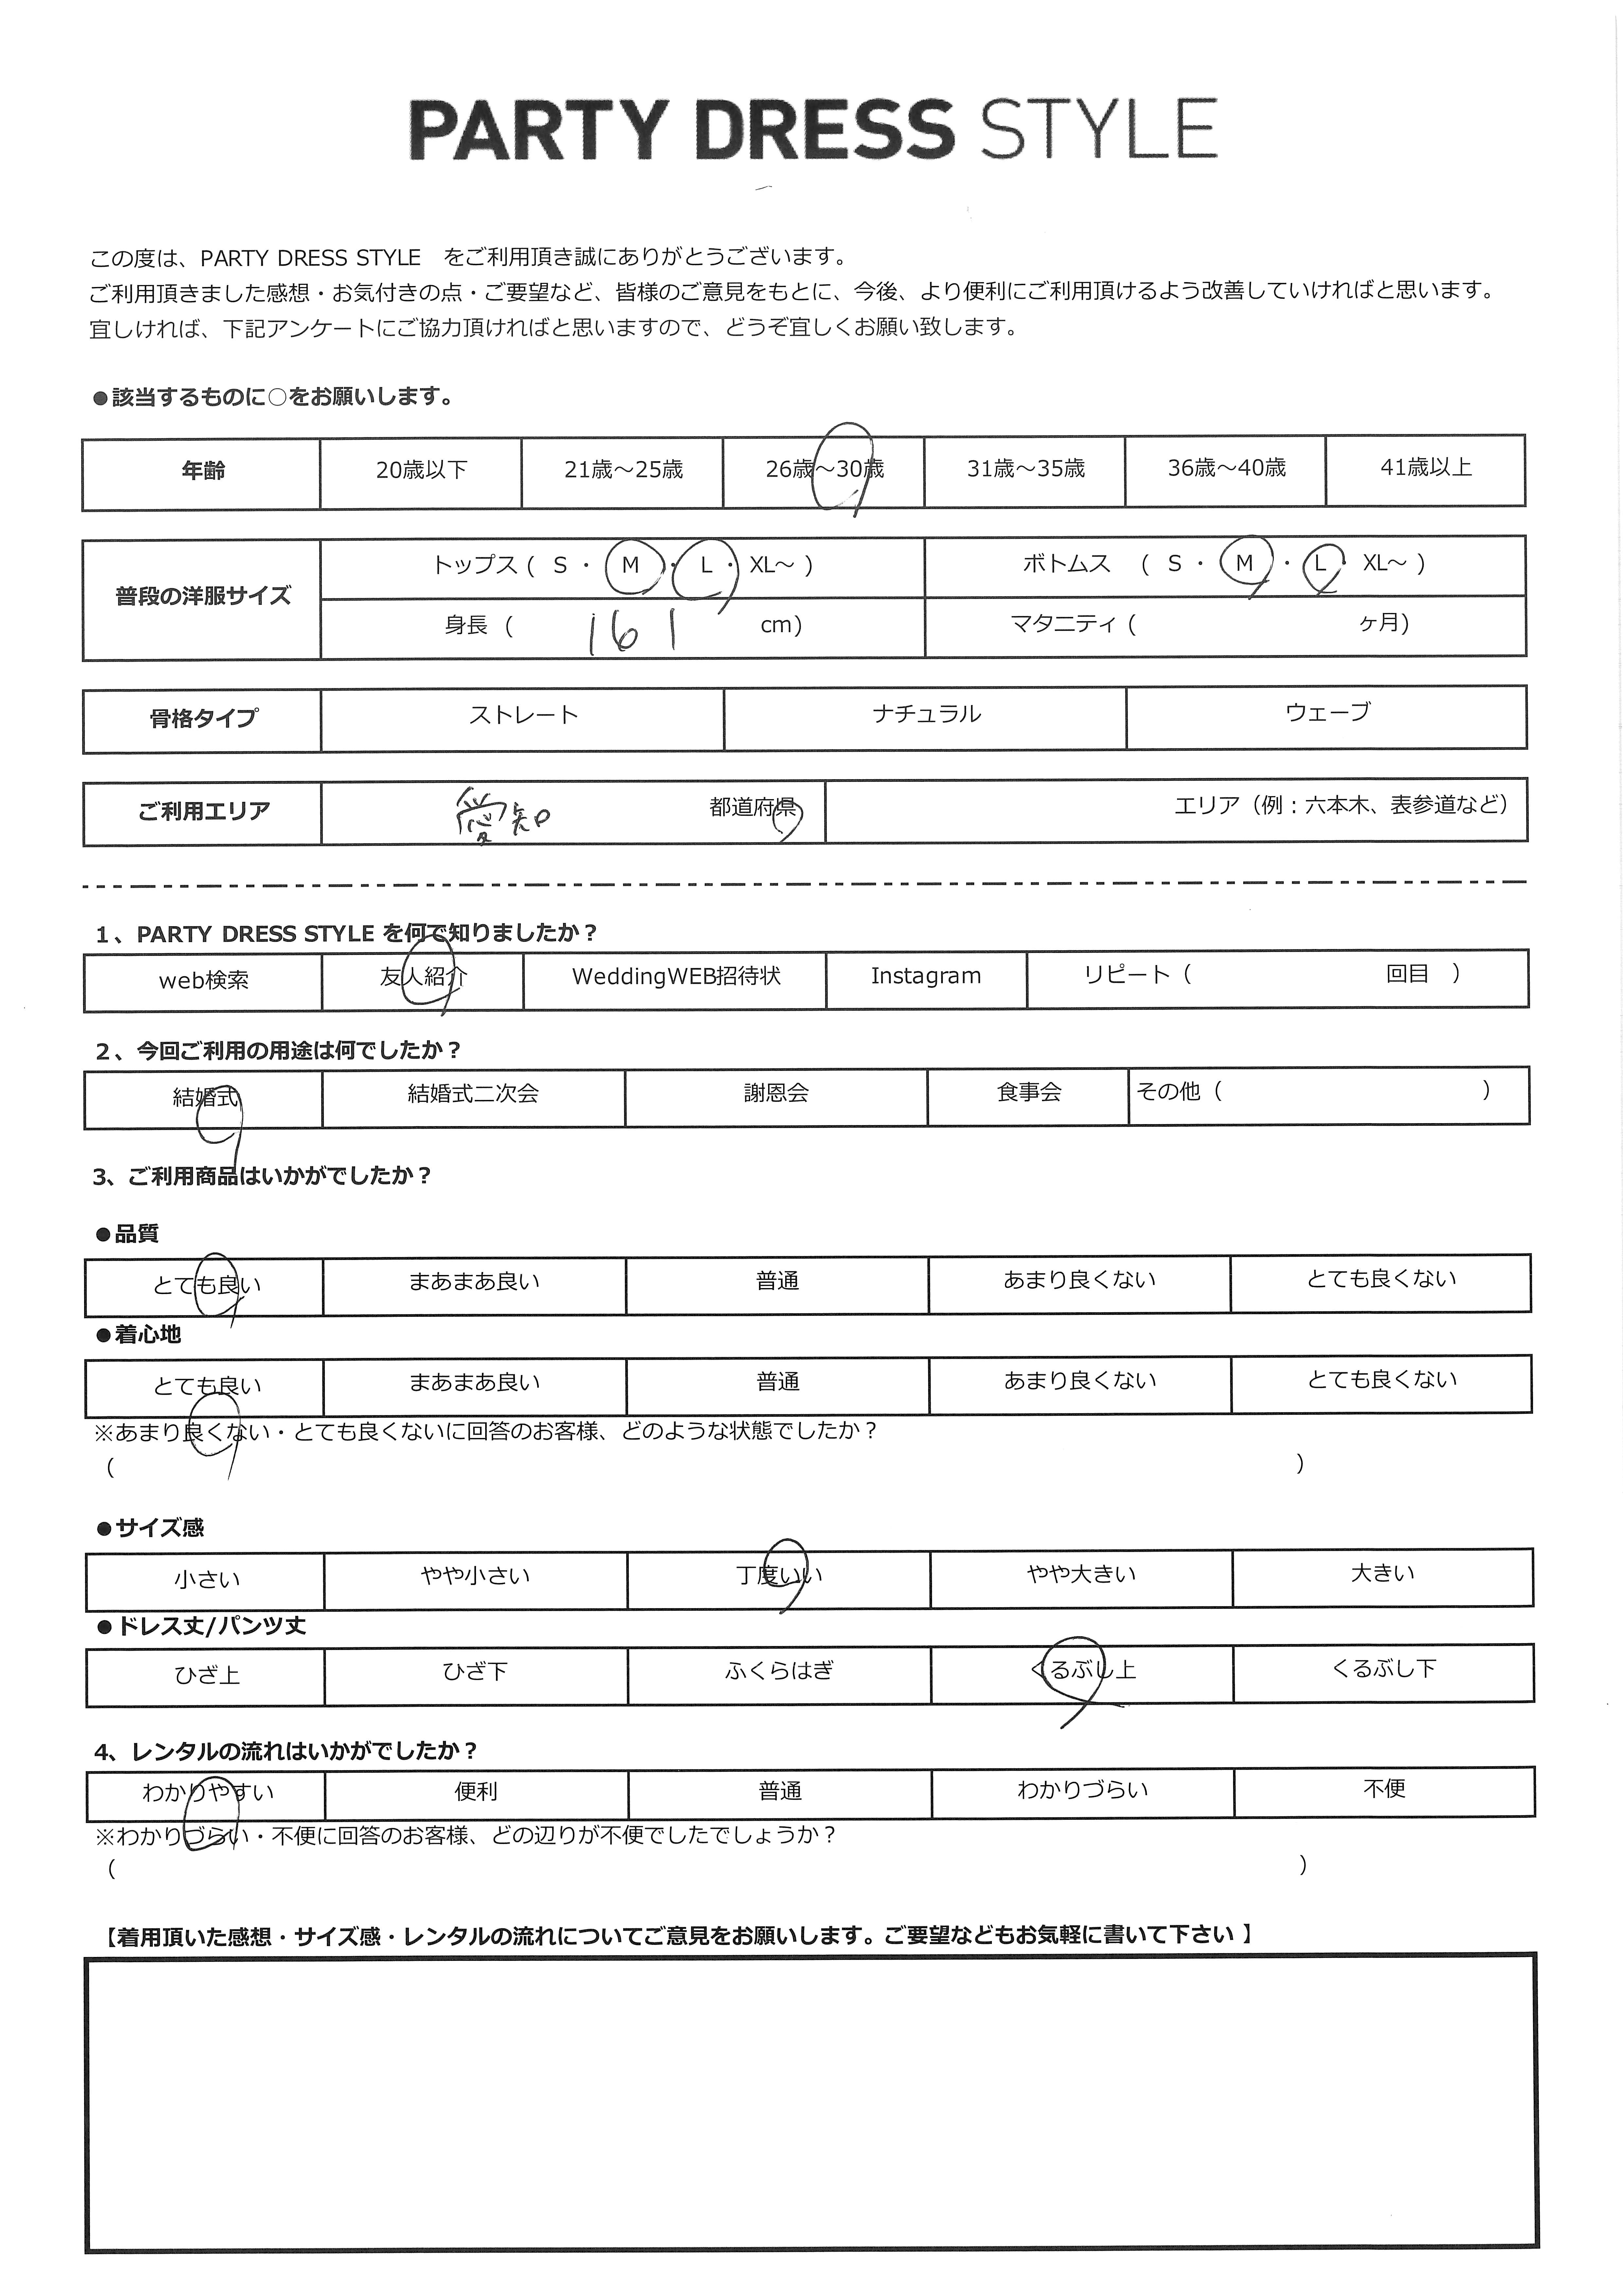 PARTY DRESS STYLE
この度は、PARTY DRESS STYLE をご利用頂き誠にありがとうございます。
ご利用頂きました感想・お気付きの点・ご要望など、皆様のご意見をもとに、今後、より便利にご利用頂けるよう改善していければと思います。
宜しければ、下記アンケートにご協力頂ければと思いますので、どうぞ宜しくお願い致します。
●該当するものに○をお願いします。
年齢 20歳以下 21歳～25歳 26歳～30歳 31歳～35歳 36歳～40歳 41歳以上
普段の洋服サイズ トップス ( S ・ M ・ L ・ XL～ ) ボトムス ( S ・ M ・ L ・ XL～ )
身長 ( 161 cm) マタニティ ( ヶ月)
骨格タイプ ストレート ナチュラル ウェーブ
ご利用エリア 愛知 都道府県 エリア（例：六本木、表参道など）
1、PARTY DRESS STYLE を何で知りましたか？
web検索 友人紹介 WeddingWEB招待状 Instagram リピート（ 回目 ）
2、今回ご利用の用途は何でしたか？
結婚式 結婚式二次会 謝恩会 食事会 その他（ ）
3、ご利用商品はいかがでしたか？
●品質
とても良い まあまあ良い 普通 あまり良くない とても良くない
●着心地
とても良い まあまあ良い 普通 あまり良くない とても良くない
※あまり良くない・とても良くないに回答のお客様、どのような状態でしたか？
( )
●サイズ感
小さい やや小さい 丁度いい やや大きい 大きい
●ドレス丈/パンツ丈
ひざ上 ひざ下 ふくらはぎ くるぶし上 くるぶし下
4、レンタルの流れはいかがでしたか？
わかりやすい 便利 普通 わかりづらい 不便
※わかりづらい・不便に回答のお客様、どの辺りが不便でしたでしょうか？
( )
【着用頂いた感想・サイズ感・レンタルの流れについてご意見をお願いします。ご要望などもお気軽に書いて下さい 】